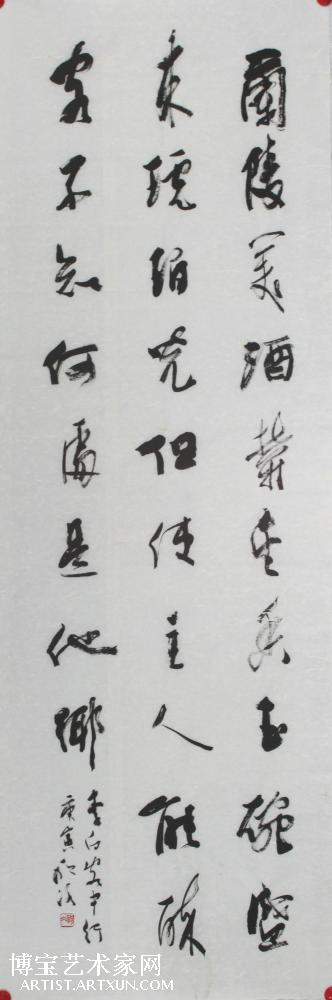 蘭陵美酒鬱金香玉碗盛
来琥珀光但使主人能醉
客不知何處是他鄉
李白客中行
庚寅
博宝艺术家网
ARTIST.ARTXUN.COM